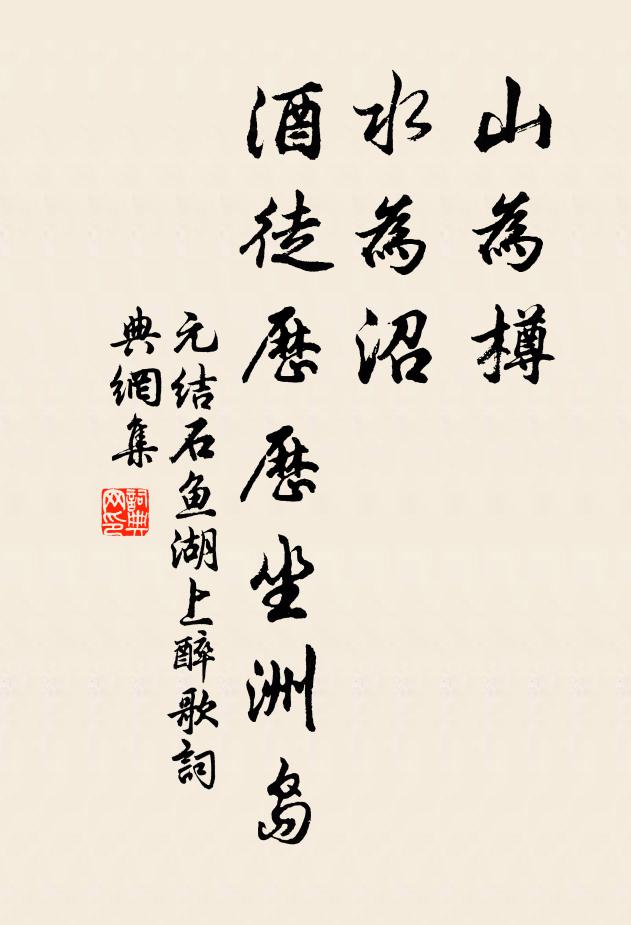 山為樽
水為沼
酒徒歷歷坐洲島
元结石鱼湖上醉歌詞
典網集
詞典网印